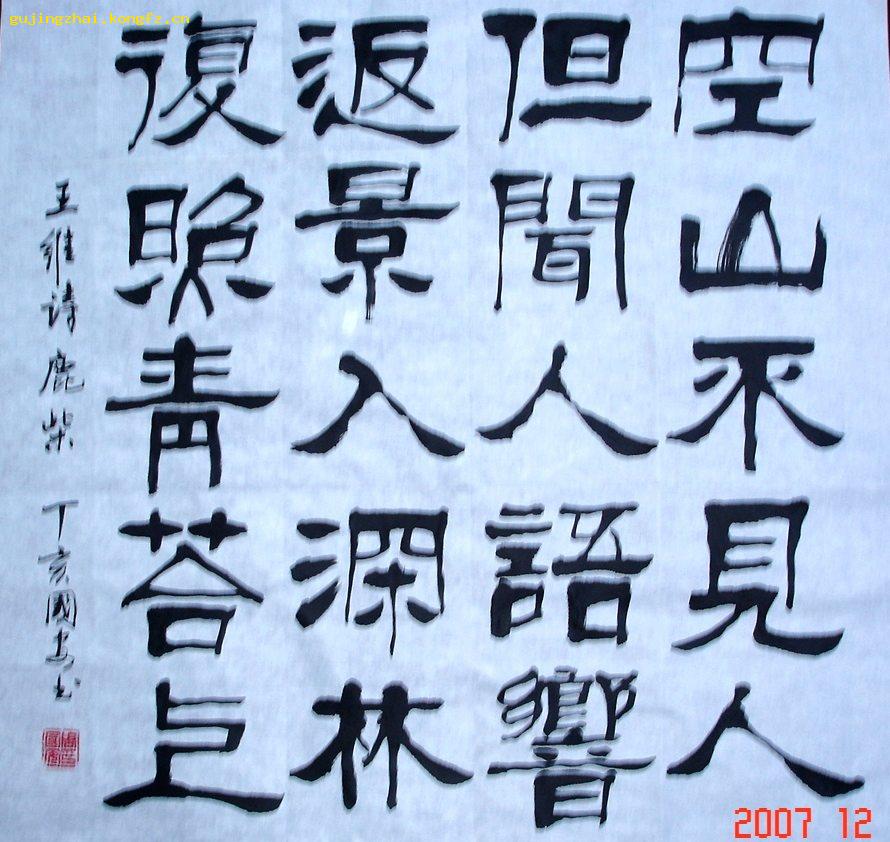 gujingzhai.kongfz.cn
空山不見人
但聞人語響
返景入深林
復照青苔上
王維诗鹿柴 丁亥國安书
2007 12